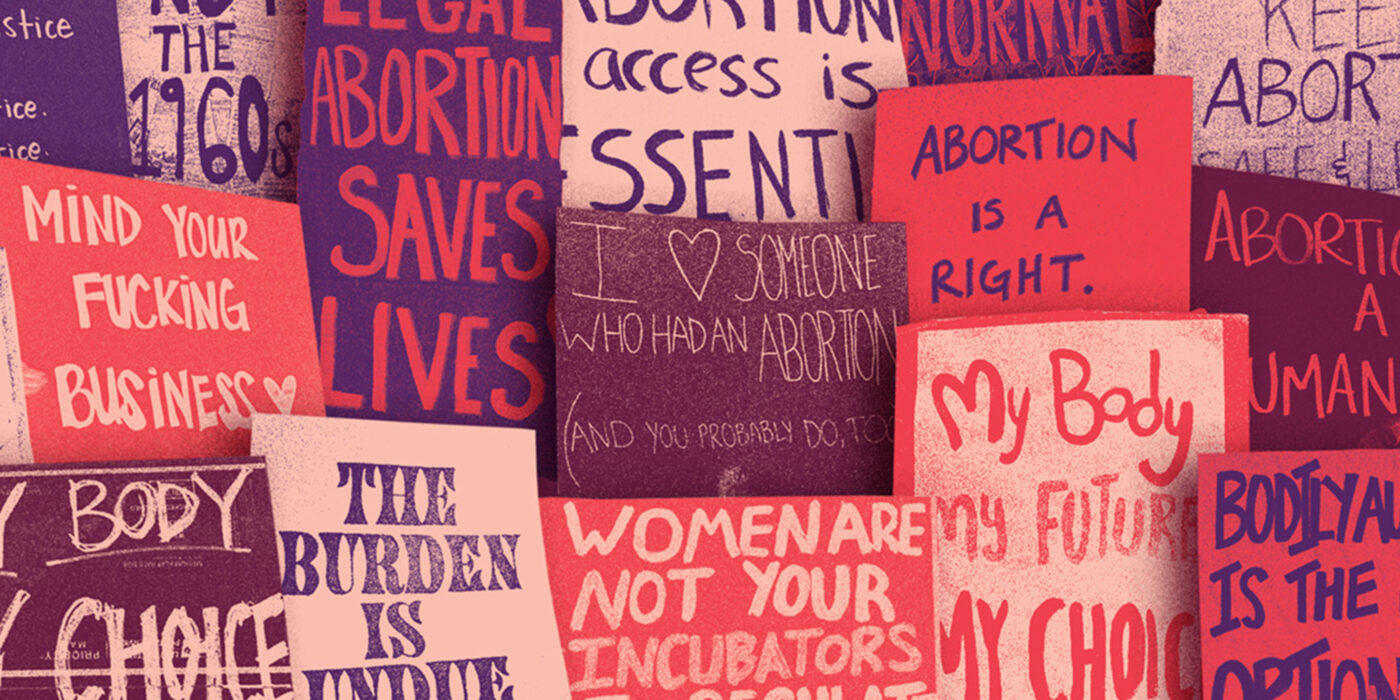 stice
ice.
ice.
NOT
THE
1960s
LEGAL
ABORTION
SAVES
LIVES
ABORTION
access is
ESSENTI
NORMAL
KEE
ABORT
SAFE & LE
MIND YOUR
FUCKING
BUSINESS
I ♡ SOMEONE
WHO HAD AN ABORTION
(AND YOU PROBABLY DO, TOO
ABORTION
IS A
RIGHT.
ABORTIO
A
UMAN
Y BODY
Y CHOICE
THE
BURDEN
IS
UNDUE
WOMEN ARE
NOT YOUR
INCUBATORS
My Body
my FUTURE
MY CHOIC
BODILY AU
IS THE
OPTION